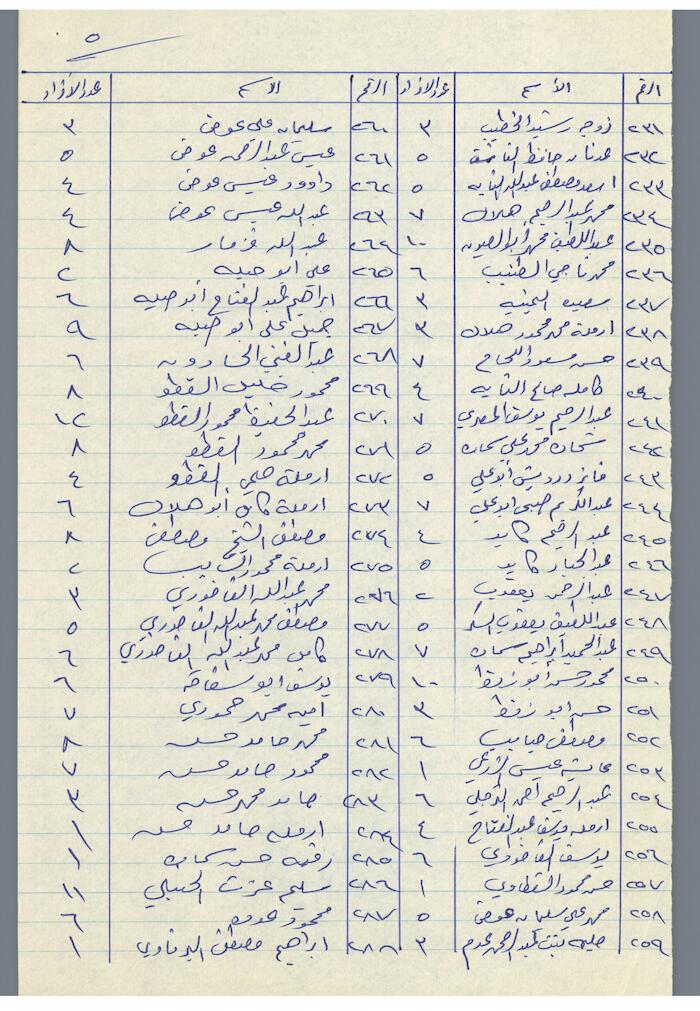 ٥
الرقم الاسم عدد الأفراد الرقم الاسم عدد الأفراد
٢٣١ زوجة رشيد الخطيب ٣ ٢٦٠ سليمان علي عوض ٣
٢٣٢ عدنان حافظ ٥ ٢٦١ عيسى عبد الرحمن عوض ٥
٢٣٣ اسعد مصطفى عبدالله ٥ ٢٦٢ داوود عيسى عوض ٤
٢٣٤ محمد عبد الرحيم هلال ٧ ٢٦٣ عبدالله عيسى عوض ٤
٢٣٥ عبداللطيف محمد ابو العيون ١٠ ٢٦٤ عبد الله قزمار ٨
٢٣٦ محمد ناجي الطنيب ٦ ٢٦٥ علي ابو حيه ٢
٢٣٧ سعيده اليمنيه ٣ ٢٦٦ ابراهيم عبد الفتاح أبو حيه ٦
٢٣٨ ارملة محمد محمود هلال ٣ ٢٦٧ جميل علي ابو حيه ٩
٢٣٩ حسن مسعود اللحام ٧ ٢٦٨ عبد الغني ٦
٢٤٠ كامله صالح ٤ ٢٦٩ محمود خليل القطو ٨
٢٤١ عبد الرحيم يوسف المصري ٧ ٢٧٠ عبد الحفيظ محمود القطو ١٢
٢٤٢ شحاده محمد علي سماره ٥ ٢٧١ محمد محمود القطو ٨
٢٤٣ فايز درويش ابو علي ٥ ٢٧٢ ارملة القطو ٤
٢٤٤ عبد الكريم صبحي ابو علي ٧ ٢٧٣ ارملة كامل أبو هلال ٦
٢٤٥ عبد الرحيم كايد ٤ ٢٧٤ مصطفى الشيخ مصطفى ٨
٢٤٦ عبد الجبار كايد ٥ ٢٧٥ ارملة محمود ٢
٢٤٧ عبد الرحمن يعقوب ٢ ٢٧٦ محمد عبدالله الفاخوري ٣
٢٤٨ عبد اللطيف يعقوب ٥ ٢٧٧ مصطفى محمد عبدالله الفاخوري ٥
٢٤٩ عبد الحميد ابراهيم سماره ٧ ٢٧٨ كامل محمد عبد الله الفاخوري ٦
٢٥٠ محمود حسن أبو زنط ١٠ ٢٧٩ يوسف ابو سفاقه ٦
٢٥١ حسن ابو زنط ٣ ٢٨٠ امينه محمد حموري ٧
٢٥٢ مصطفى حبايب ٦ ٢٨١ محمد حامد حسن ٨
٢٥٣ عائشه عيسى ١ ٢٨٢ محمود حامد حسن ٧
٢٥٤ عبد الرحيم احمد ٦ ٢٨٣ حامد محمد حسن ٣
٢٥٥ ارملة عبد الفتاح ٤ ٢٨٤ ارملة حامد حسن ١
٢٥٦ يوسف الفاخوري ٦ ٢٨٥ رقيه حسن سماره ١
٢٥٧ حسن محمود القطاوي ١ ٢٨٦ سليم عزت الحنبلي ١١
٢٥٨ محمد علي سليمان عوض ٥ ٢٨٧ محمود ٦
٢٥٩ حليمه بنت عبد الرحمن ٣ ٢٨٨ ابراهيم مصطفى البرقاوي ١